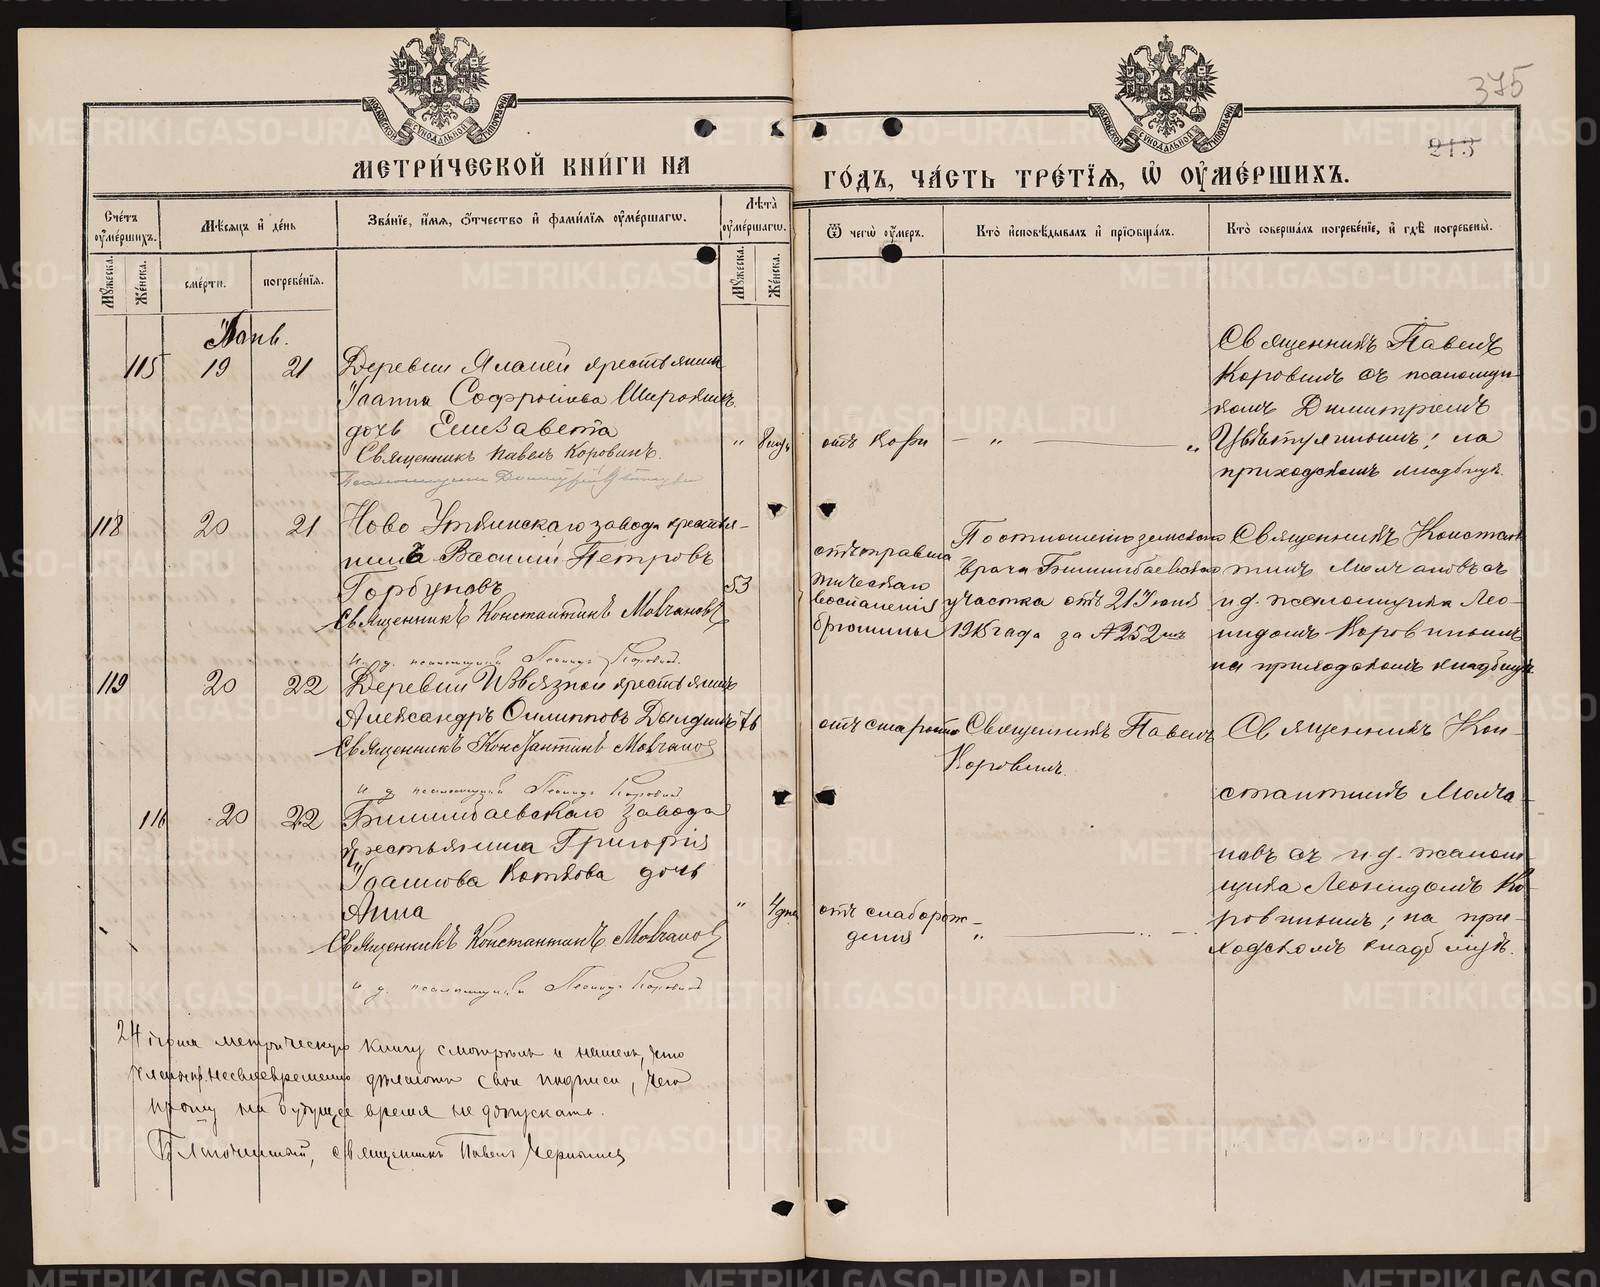 375
213
МЕТРИ́ЧЕСКОЙ КНИ́ГИ НА
ГО́ДЪ, ЧА́СТЬ ТРЕ́ТІЯ, Ѿ ОУМЕ́РШИХЪ.
Сче́тъ оуме́ршихъ.
Мѣсяцъ и де́нь
Зва́ніе, и́мя, о́тчество и фами́лія оуме́ршагѡ.
Лѣта̀ оуме́ршагѡ.
Ѿ чегѡ̀ оу́меръ.
Кто̀ исповѣ́дывалъ и пріѡбща́лъ.
Кто̀ соверша́лъ погребе́ніе, и гдѣ̀ погребе́ны.
Му́жеска.
Же́нска.
сме́рти.
погребе́нія.
Му́жеска.
Же́нска.
115 19 21
Деревни крестьянина
Іоанна Софроніева Широкихъ
дочь Елизавета
Священникъ Павелъ Коровинъ.
отъ кори
Священникъ Павелъ
Коровинъ съ псаломщи-
комъ Димитріемъ
на
приходскомъ кладбищѣ.
118 20 21
Ново Уткинскаго завода крестья-
нинъ Василій Петровъ
Горбуновъ
53
Священникъ Константинъ Молчановъ
И. д. псаломщика Леонидъ Коровинъ
воспаленія
брюшины
По отношенію земскаго
врача Билимбаевскаго
участка отъ 21 Іюня
1915 года за № 252мъ
Священникъ Констан-
тинъ Молчановъ съ
и. д. псаломщика Лео-
нидомъ Коровинымъ
на приходскомъ кладбищѣ
119 20 22
Деревни Извязной крестьянинъ
Александръ Филипповъ 76
Священникъ Константинъ Молчановъ
и. д. псаломщика Леонидъ Коровинъ
отъ старости
Священникъ Павелъ
Коровинъ.
Священникъ Кон-
стантинъ Молча-
новъ съ и. д. псалом-
щика Леонидомъ Ко-
ровинымъ; на при-
ходскомъ кладбищѣ.
116 20 22
Билимбаевскаго завода
крестьянина Григорія
Іоаннова Коткова дочь
Анна
4 дня
Священникъ Константинъ Молчановъ
и. д. псаломщика Леонидъ Коровинъ
отъ слаборож-
денія
24 метрическую книгу смотрѣлъ и нашелъ, что
несвоевременно дѣлаютъ свои подписи, чего
прошу на будущее время не допускать.
Благочинный, священникъ Павелъ
METRIKI.GASO-URAL.RU